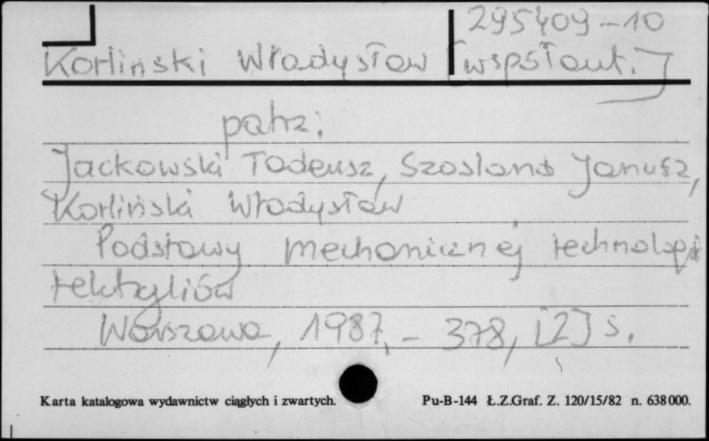 295409-10
Korliński Władysław [współaut.]
patrz:
Jackowski Tadeusz, Szosland Janusz,
Korliński Władysław
Podstawy mechanicznej technologii
tekstyliów
Warszawa, 1987. – 378, [2] s.
Karta katalogowa wydawnictw ciągłych i zwartych. Pu-B-144 Ł.Z.Graf. Z. 120/15/82 n. 638000.